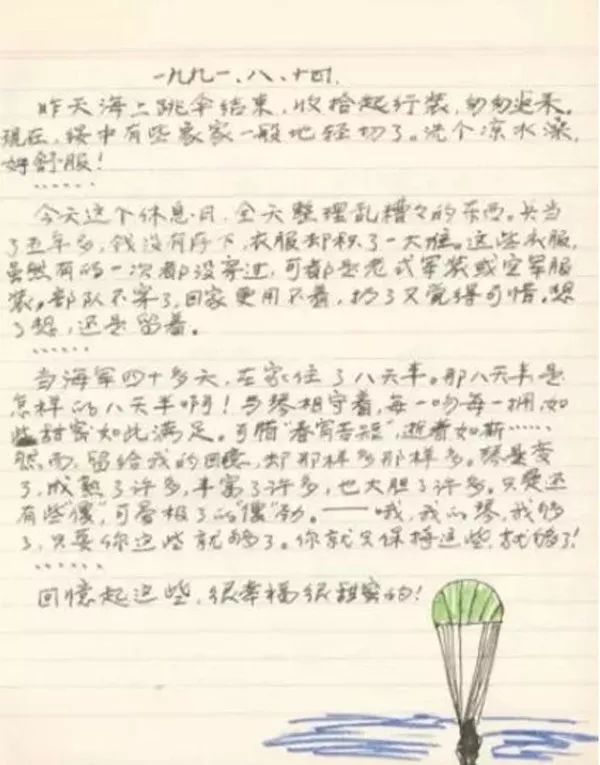 一九九一.八.十四.
昨天海上跳伞结束,收拾起行装,匆匆返来。
现在,绥中有些象家一般地轻切了。洗个凉水澡,
好舒服!
……
今天这个休息日,全天整理乱糟々的东西。兵当
了五年多,钱没有存下,衣服却积了一大堆。这些衣服,
虽然有的一次都没穿过,可都是老式军装或空军服
装。部队不穿了,回家更用不着,扔了又觉得可惜。想
了想,还是留着。
……
当海军四十多天,在家住了八天半。那八天半是
怎样的八天半啊!与琴相守着,每一吻每一拥,如
此甜蜜如此满足。可惜“春宵苦短”,逝者如斯……
然而,留给我的回憶,却那样多那样多。琴是变
了,成熟了许多,丰富了许多,也大胆了许多。只是还
有些“傻”,可爱极了的“傻”劲。——哦,我的琴,我够
了,只要你这些就够了。你就只保持这些,就够了!
……
回憶起这些,很幸福很甜蜜的!